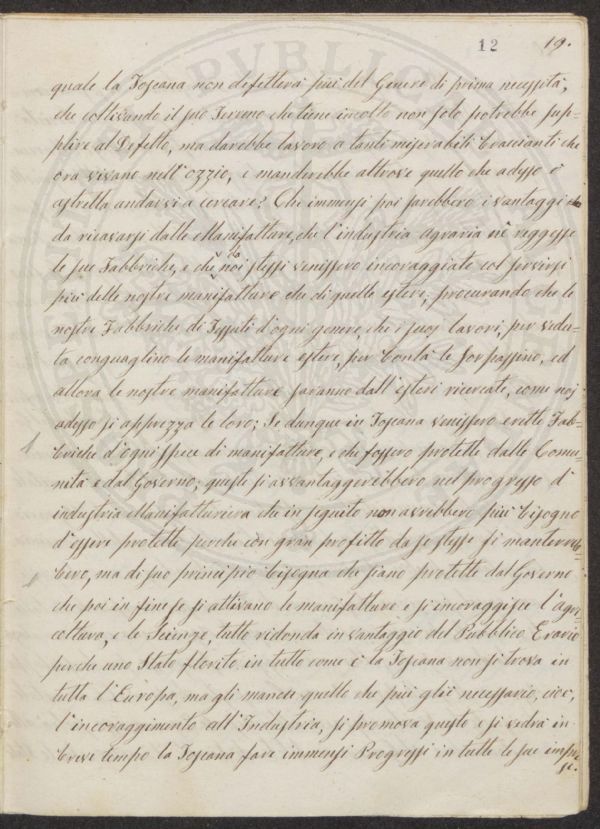 12 19.
quale la Toscana non difetterà più del Genere di prima necessità,
che coltivando il suo Terreno che tiene incolto non solo potrebbe sup-
plire al Difetto, ma darebbe lavoro a tanti miserabili braccianti che
ora vivano nell'ozzio, e manderebbe altrove quello che adesso è
astretta andarsi a cercare? Che immensi poi sarebbero i vantaggi
da ricavarsi dalle Manifatture, che l'industria agraria reggesse
le sue Fabbriche, e che noi stessi venissero incoraggiate col servirsi
più delle nostre manifatture che di quelle estere; procurando che le
nostre Fabbriche di Tessuti d'ogni genere, che i suoj lavori, per vedu-
ta conguaglino le manifatture estere, per bontà le sorpassino, ed
allora le nostre manifatture saranno dall'esteri ricercate, come noj
adesso si apprezza le loro; Se dunque in Toscana venissero erette Fab-
briche d'ogni spece di manifatture, e che fossero protette dalle Comu-
nità e dal Governo; queste si avvantaggerebbero nel progresso d'
industria Manifatturiera che in seguito non avrebbero più bisogno
d'essere protette perche con gran profitto da se stesse si manterreb-
bero, ma di suo principio bisogna che siano protette dal Governo
che poi in fine se si attivano le manifatture e si incoraggisce l'agri-
coltura, e le Scienze, tutto ridonda in vantaggio del Pubblico Erario
perche uno Stato florito in tutto come è la Toscana non si trova in
tutta l'Europa, ma gli manca quello che più gliè necessario, cioè,
l'incoraggimento all'Industria, si promova questo e si vedrà in
breve tempo la Toscana fare immensi Progressi in tutte le sue impre
se.